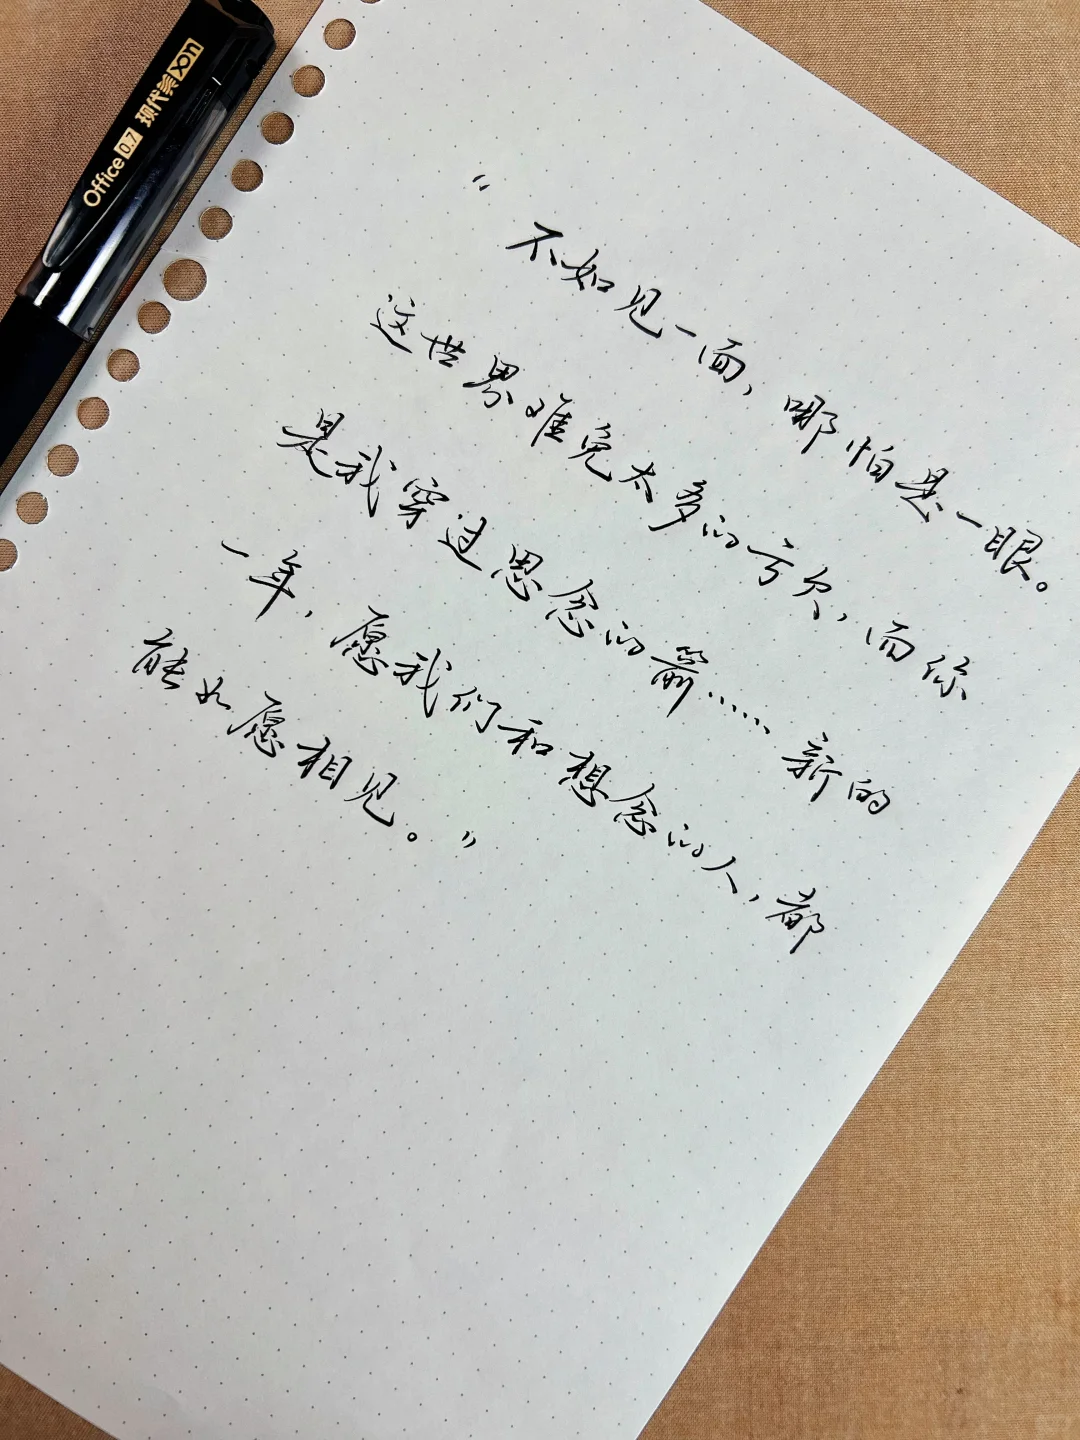 Office 0.7 现代美 xon
“
不如见一面，哪怕是一眼。
这世界难免太多的亏欠，而你
是我穿过思念的箭……新的
一年，愿我们和想念的人，都
能如愿相见。”